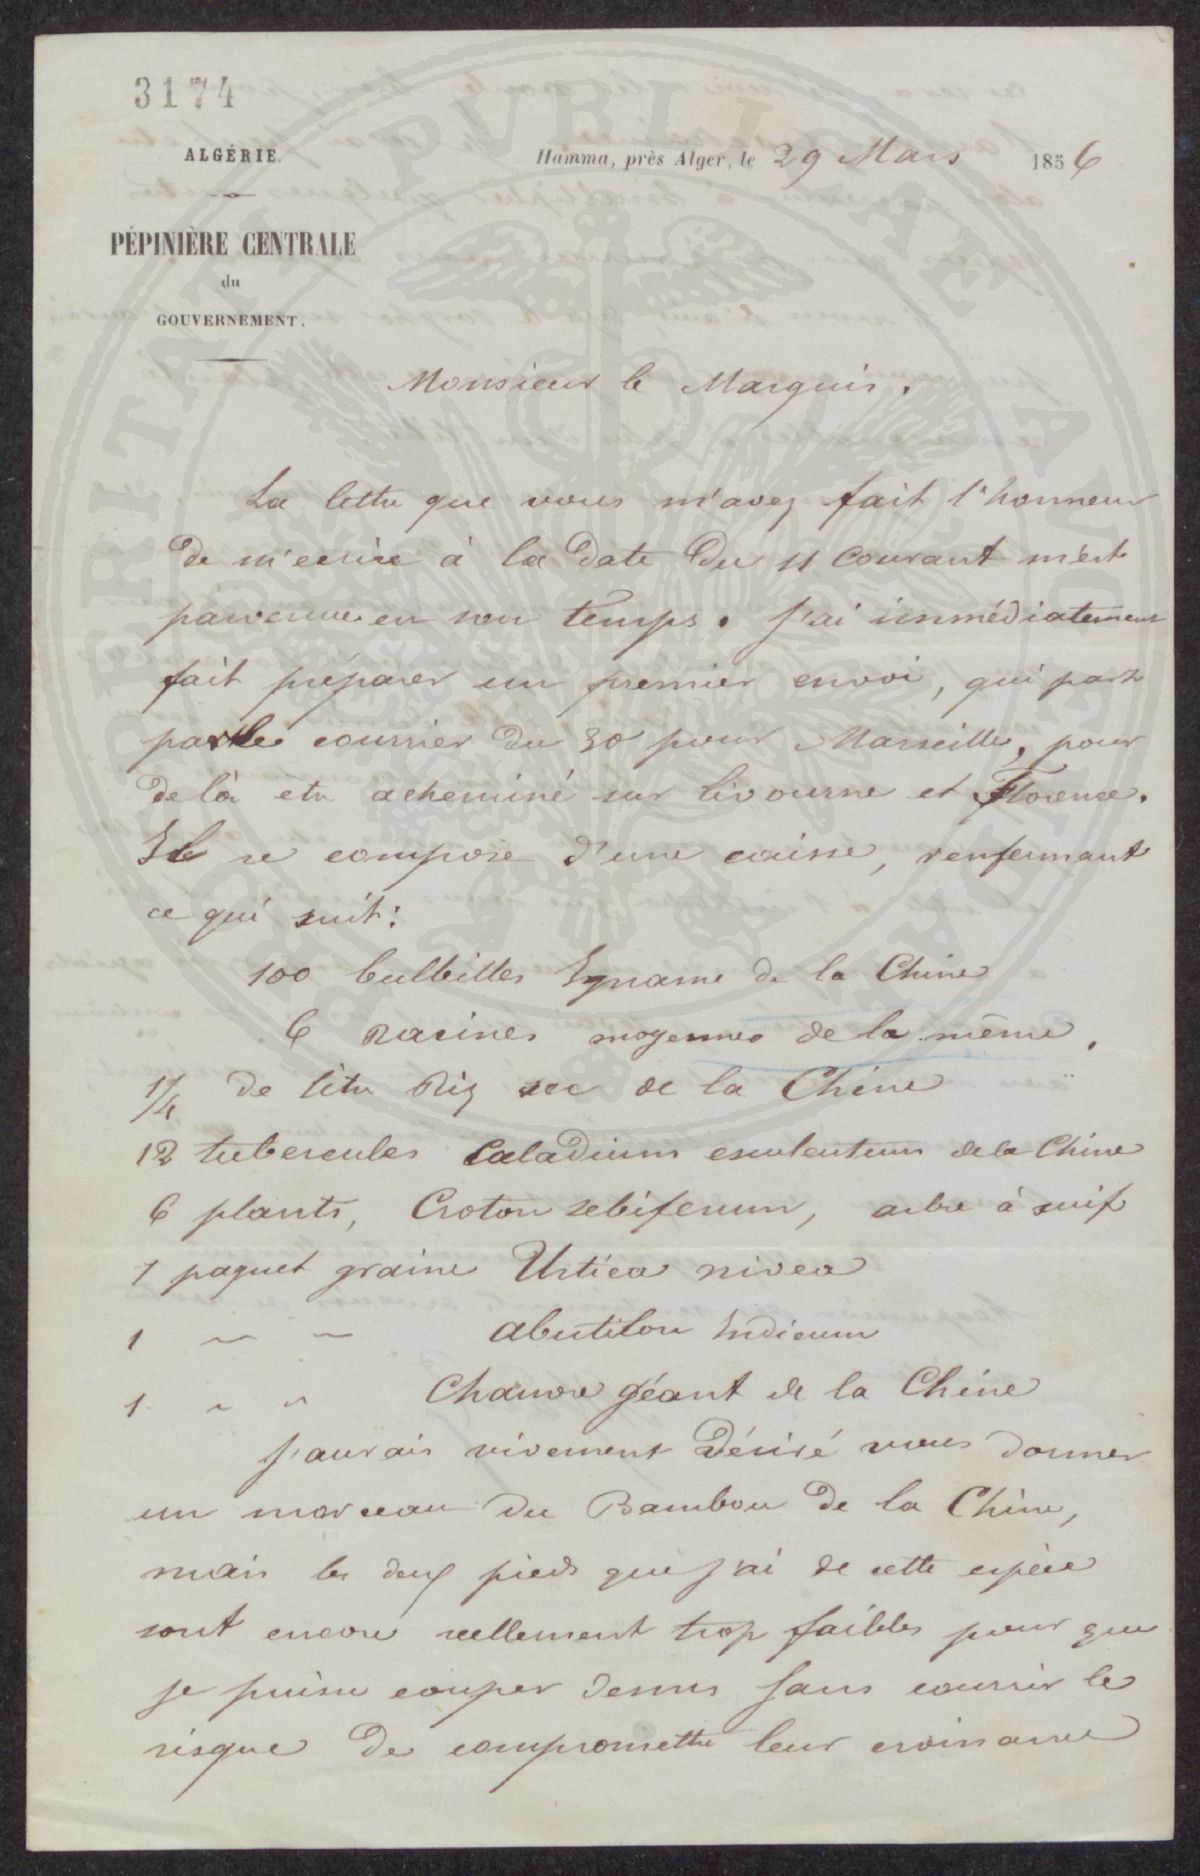 3174
ALGÉRIE.
Hamma, près Alger, le 29 Mars 1856
PÉPINIÈRE CENTRALE
du
GOUVERNEMENT.
Monsieur le Marquis,
La lettre que vous m'avez fait l'honneur
de m'ecrire à la date du 11 courant m'est
parvenue en son temps. J'ai immédiatement
fait préparer un premier envoi, qui part
par le courrier du 30 pour Marseille, pour
de là etre acheminé sur Livourne et Florence.
Il se compose d'une caisse, renfermant
ce qui suit:
100 bulbilles Igname de la Chine
6 Racines moyennes de la même.
1/4 de litre Riz sec de la Chine
12 tubercules Caladium esculentum de la Chine
6 plants, Croton sebiferum, arbre à suif
1 paquet graine Urtica nivea
1 " " Abutilon Indicum
1 " " Chanvre géant de la Chine
J'aurais vivement désiré vous donner
un morceau du Bambou de la Chine,
mais les deux pieds que j'ai de cette espèce
sont encore reellement trop faibles pour que
je puisse couper dessus sans courrir le
risque de compromettre leur croissance
PROSPERITATI PVBLICAE AVGENDAE